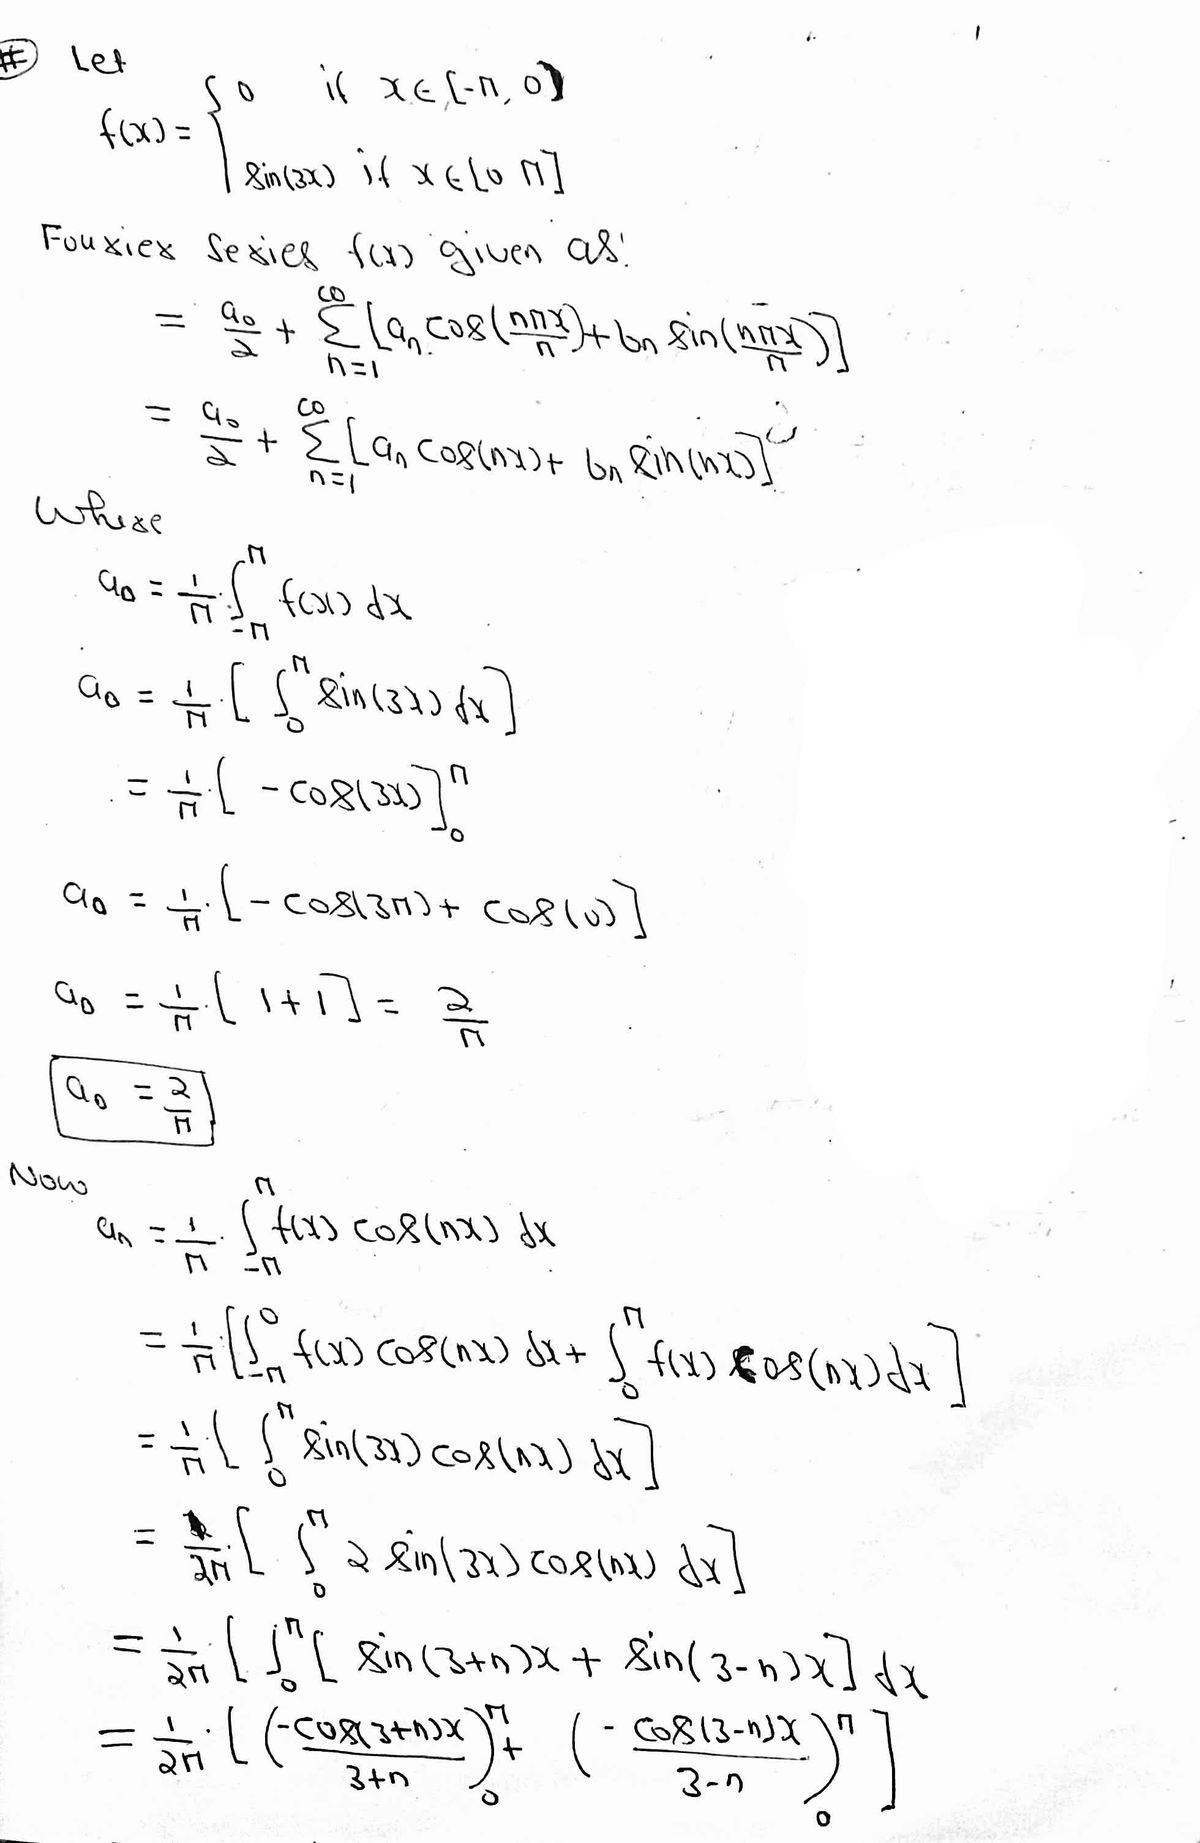 # Let
f(x) = { 0 if x ∈ [-π, 0)
sin(3x) if x ∈ [0 π]
Fourier Series f(x) given as:
= a₀/2 + Σ_{n=1}^{∞} [aₙ cos(nπx/π) + bₙ sin(nπx/π)]
= a₀/2 + Σ_{n=1}^{∞} [aₙ cos(nx) + bₙ sin(nx)]
Where
a₀ = 1/π ∫_{-π}^{π} f(x) dx
a₀ = 1/π [ ∫_0^π sin(3x) dx ]
= 1/π [ -cos(3x) ]_0^π
a₀ = 1/π [ -cos(3π) + cos(0) ]
a₀ = 1/π [ 1+1 ] = 2/π
a₀ = 2/π
Now
aₙ = 1/π ∫_{-π}^{π} f(x) cos(nx) dx
= 1/π [ ∫_{-π}^0 f(x) cos(nx) dx + ∫_0^π f(x) cos(nx) dx ]
= 1/π [ ∫_0^π sin(3x) cos(nx) dx ]
= 1/2π [ ∫_0^π 2 sin(3x) cos(nx) dx ]
= 1/2π [ ∫_0^π [ sin(3+n)x + sin(3-n)x ] dx
= 1/2π [ (-cos(3+n)x / 3+n)_0^π + (-cos(3-n)x / 3-n)_0^π ]